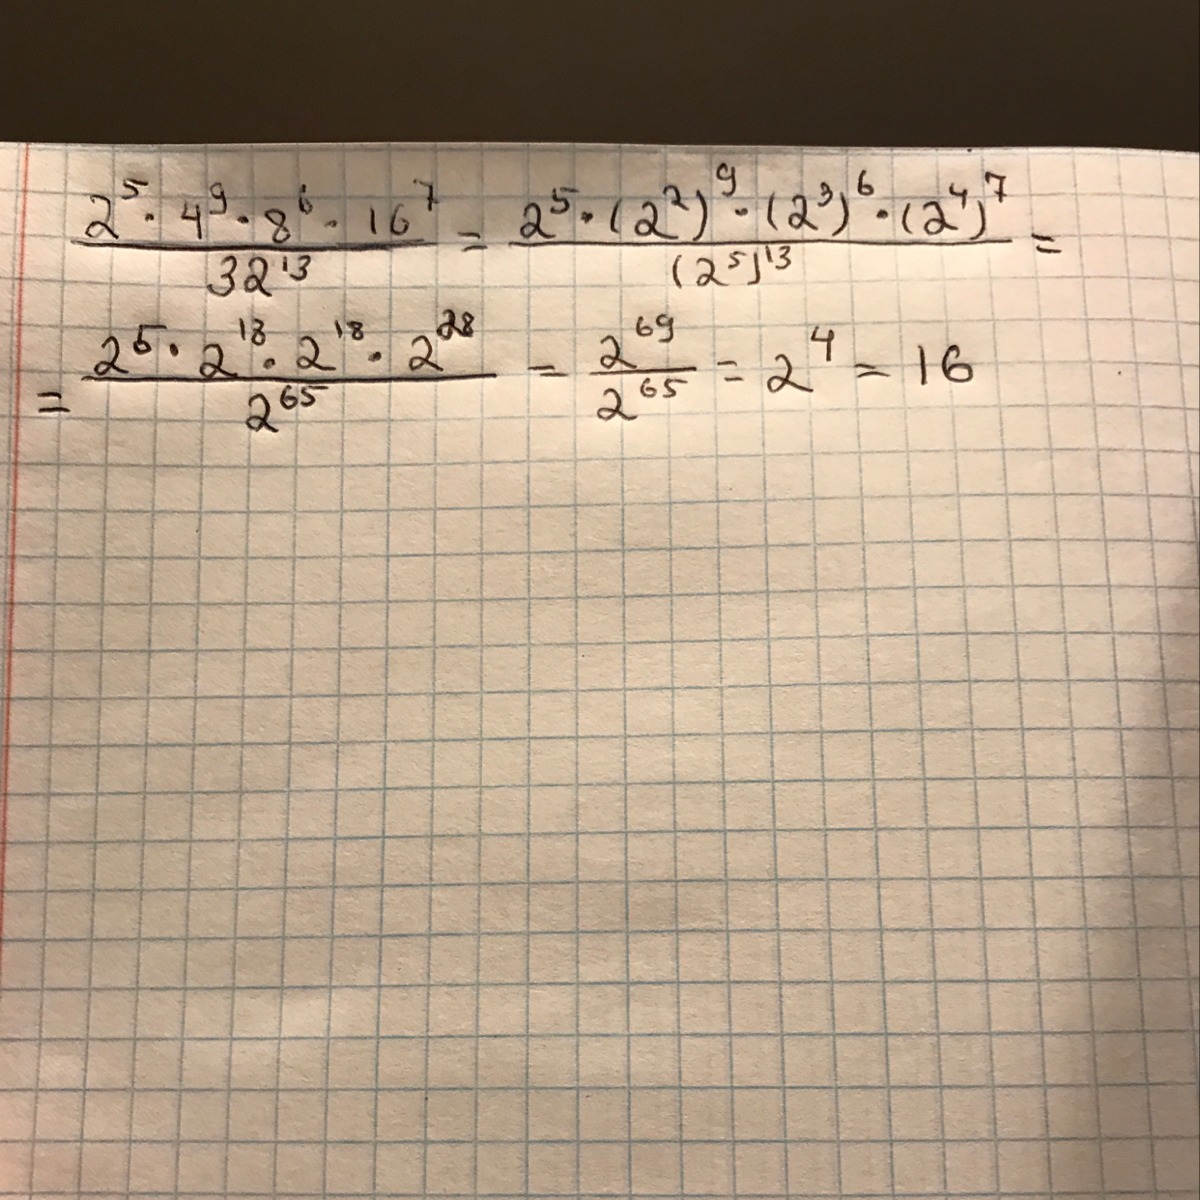 2⁵ · 4⁹ · 8⁶ · 16⁷ / 32¹³ = 2⁵ · (2²)⁹ · (2³)⁶ · (2⁴)⁷ / (2⁵)¹³ =
= 2⁵ · 2¹⁸ · 2¹⁸ · 2²⁸ / 2⁶⁵ = 2⁶⁹ / 2⁶⁵ = 2⁴ = 16